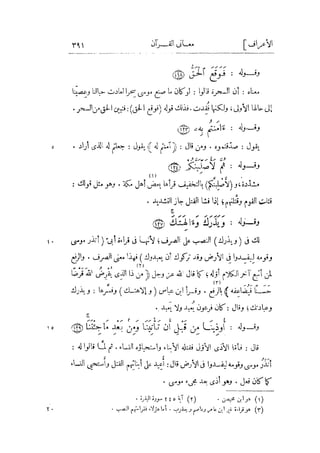 ٣٩١ معانى القرآن [الأعراف
وقوله : فَوَقَعَ الْحَقُّ ١١٨
معناه : أن السحرة قالوا : لو كان ما صنع موسى سحرا لعادت حبالنا وعصينا
إلى حالها الأولى، ولكنها فُقِدت. فذلك قوله (فوقع الحق) : فتبين الحق من السحر.
وقوله : ءَامَنتُم بِهِ ١٢٣
يقول : صدّقتموه. ومن قال : (آمنتم له) يقول : جعلتم له الذى أراد. ٥
وقوله : ثُمَّ لَأُصَلِّبَنَّكُمْ ١٢٤
مشدّدة، و (لأصلبنكم) بالتخفيف قرأها بعض أهل مكة. وهو مثل قولك :
قتلت القوم وقتّلتهم؛ إذا فشا القتل جاز التشديد.
وقوله : وَيَذَرَكَ وَءَالِهَتَكَ ١٢٧
لك فى (ويذرك) النصب على الصرف؛ لأنها فى قراءة أبىّ (أتذر موسى ١٠
وقومه ليفسدوا فى الأرض وقد تركوك أن يعبدوك) فهذا معنى الصرف. والرفع
لمن أتبع آخر الكلام أوله؛ كما قال الله عز وجل (من ذا الذى يُقرِضُ اللهَ قرضًا
حسنًا فيُضاعفُه) بالرفع. وقرأ ابن عباس (وإلاهتك) وفسّرها : ويذرك
وعبادتك؛ وقال : كان فرعون يُعبد ولا يَعبد.
وقوله : أُوذِينَا مِن قَبْلِ أَن تَأْتِيَنَا وَمِنۢ بَعْدِ مَا جِئْتَنَا ١٢٩ ١٥
قال : فأمّا الأذى الأوّل فقتله الأبناء واستحياؤه النساء. ثم لمّا قالوا له :
أتذَر موسى وقومه ليفسدوا فى الأرض قال : أعيد على أبنائهم القتل وأستحيى النساء
كما كان فعل. وهو أذى بعد مجىء موسى.
(١) هو ابن محيصن. (٢) آية ٢٤٥ سورة البقرة.
(٣) هو قراءة غير ابن عامر وعاصم ويعقوب. أما هؤلاء فقراءتهم النصب. ٢٠